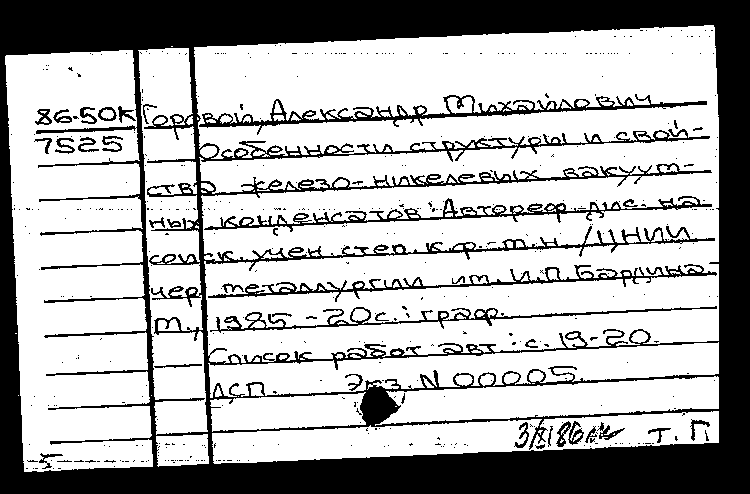 86-50К Горовой, Александр Михайлович.
7525 Особенности структуры и свой-
ства железо-никелевых вакуум-
ных конденсатов : Автореф. дис. на
соиск. учен. степ. к.ф.-м.н. / ЦНИИ
чер. металлургии им. И.П. Бардина. -
М., 1985. - 20с. : граф.
Список работ авт.: с. 19-20.
ДСП. Экз. N 00005.
т. П